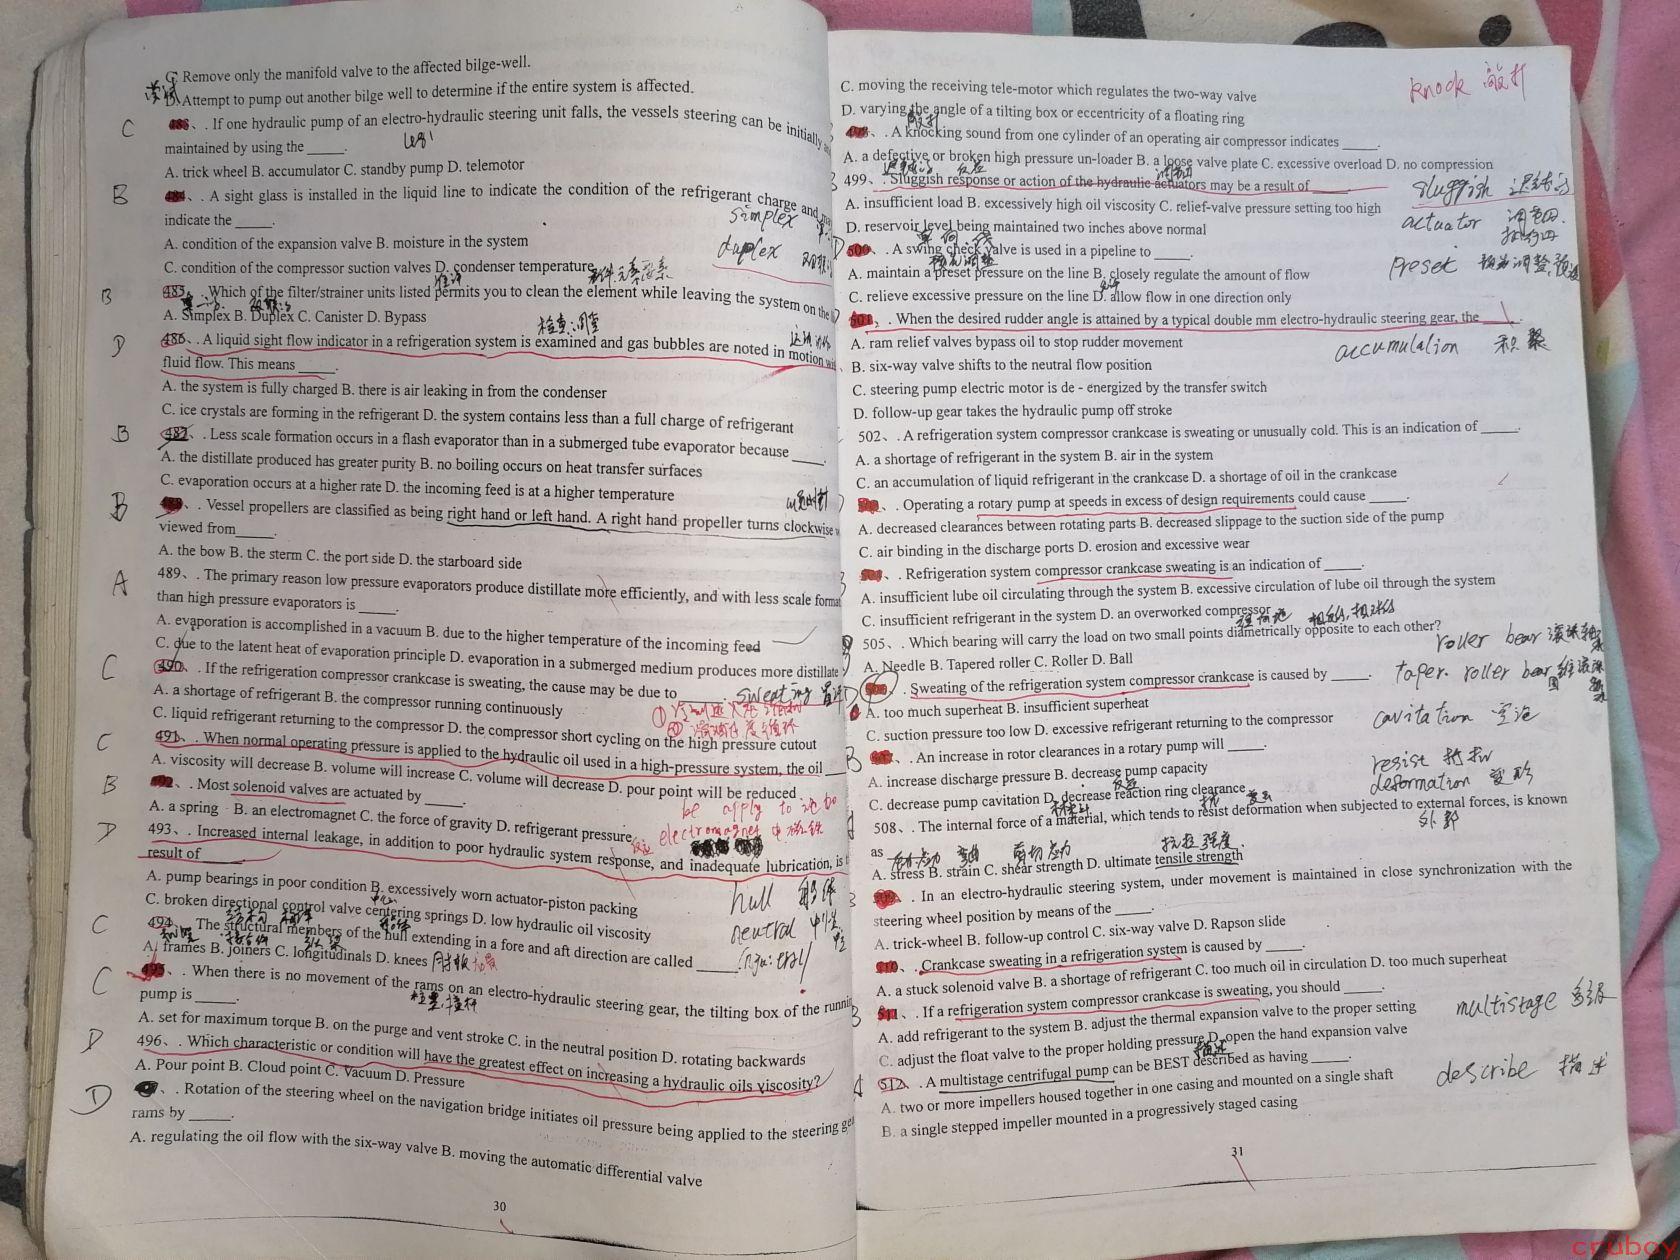 C. Remove only the manifold valve to the affected bilge-well.
D. Attempt to pump out another bilge well to determine if the entire system is affected.
C 483、. If one hydraulic pump of an electro-hydraulic steering unit falls, the vessels steering can be initially
maintained by using the _____.
A. trick wheel B. accumulator C. standby pump D. telemotor
B 484、. A sight glass is installed in the liquid line to indicate the condition of the refrigerant charge and
indicate the _____.
simplex
A. condition of the expansion valve B. moisture in the system
duplex
C. condition of the compressor suction valves D. condenser temperature
B 485、. Which of the filter/strainer units listed permits you to clean the element while leaving the system on the
A. Simplex B. Duplex C. Canister D. Bypass
检查.调查
D 486、. A liquid sight flow indicator in a refrigeration system is examined and gas bubbles are noted in motion
fluid flow. This means _____.
A. the system is fully charged B. there is air leaking in from the condenser
C. ice crystals are forming in the refrigerant D. the system contains less than a full charge of refrigerant
B 487、. Less scale formation occurs in a flash evaporator than in a submerged tube evaporator because _____.
A. the distillate produced has greater purity B. no boiling occurs on heat transfer surfaces
C. evaporation occurs at a higher rate D. the incoming feed is at a higher temperature
B 488、. Vessel propellers are classified as being right hand or left hand. A right hand propeller turns clockwise
viewed from_____.
A. the bow B. the sterm C. the port side D. the starboard side
A 489、. The primary reason low pressure evaporators produce distillate more efficiently, and with less scale format
than high pressure evaporators is _____.
A. evaporation is accomplished in a vacuum B. due to the higher temperature of the incoming feed
C. due to the latent heat of evaporation principle D. evaporation in a submerged medium produces more distillate
C 490、. If the refrigeration compressor crankcase is sweating, the cause may be due to _____. sweating
A. a shortage of refrigerant B. the compressor running continuously
C. liquid refrigerant returning to the compressor D. the compressor short cycling on the high pressure cutout
C 491、. When normal operating pressure is applied to the hydraulic oil used in a high-pressure system, the oil
A. viscosity will decrease B. volume will increase C. volume will decrease D. pour point will be reduced
B 492、. Most solenoid valves are actuated by _____.
be apply to
A. a spring B. an electromagnet C. the force of gravity D. refrigerant pressure
electromagnet 电磁铁
D 493、. Increased internal leakage, in addition to poor hydraulic system response, and inadequate lubrication, is
result of_____
A. pump bearings in poor condition B. excessively worn actuator-piston packing
hull 船体
C. broken directional control valve centering springs D. low hydraulic oil viscosity
neutral
C 494、. The structural members of the hull extending in a fore and aft direction are called _____.
A. frames B. joiners C. longitudinals D. knees
C 495、. When there is no movement of the rams on an electro-hydraulic steering gear, the tilting box of the
pump is _____.
A. set for maximum torque B. on the purge and vent stroke C. in the neutral position D. rotating backwards
D 496、. Which characteristic or condition will have the greatest effect on increasing a hydraulic oils viscosity?
A. Pour point B. Cloud point C. Vacuum D. Pressure
D 、. Rotation of the steering wheel on the navigation bridge initiates oil pressure being applied to the steering
rams by _____.
A. regulating the oil flow with the six-way valve B. moving the automatic differential valve
30
knock 敲打
C. moving the receiving tele-motor which regulates the two-way valve
D. varying the angle of a tilting box or eccentricity of a floating ring
498、. A knocking sound from one cylinder of an operating air compressor indicates _____.
A. a defective or broken high pressure un-loader B. a loose valve plate C. excessive overload D. no compression
499、. Sluggish response or action of the hydraulic actuators may be a result of _____
sluggish
A. insufficient load B. excessively high oil viscosity C. relief-valve pressure setting too high
actuator
D. reservoir level being maintained two inches above normal
D 500、. A swing check valve is used in a pipeline to _____.
preset
A. maintain a preset pressure on the line B. closely regulate the amount of flow
C. relieve excessive pressure on the line D. allow flow in one direction only
501、. When the desired rudder angle is attained by a typical double mm electro-hydraulic steering gear, the _____.
A. ram relief valves bypass oil to stop rudder movement
accumulation 积聚
B. six-way valve shifts to the neutral flow position
C. steering pump electric motor is de - energized by the transfer switch
D. follow-up gear takes the hydraulic pump off stroke
502、. A refrigeration system compressor crankcase is sweating or unusually cold. This is an indication of _____.
A. a shortage of refrigerant in the system B. air in the system
C. an accumulation of liquid refrigerant in the crankcase D. a shortage of oil in the crankcase
503、. Operating a rotary pump at speeds in excess of design requirements could cause _____.
A. decreased clearances between rotating parts B. decreased slippage to the suction side of the pump
C. air binding in the discharge ports D. erosion and excessive wear
504、. Refrigeration system compressor crankcase sweating is an indication of _____.
A. insufficient lube oil circulating through the system B. excessive circulation of lube oil through the system
C. insufficient refrigerant in the system D. an overworked compressor
505、. Which bearing will carry the load on two small points diametrically opposite to each other?
roller bear
A. Needle B. Tapered roller C. Roller D. Ball
taper. roller bear
D 506、. Sweating of the refrigeration system compressor crankcase is caused by _____.
A. too much superheat B. insufficient superheat
cavitation 空泡
C. suction pressure too low D. excessive refrigerant returning to the compressor
B 507、. An increase in rotor clearances in a rotary pump will _____.
resist 抵抗
A. increase discharge pressure B. decrease pump capacity
deformation 变形
C. decrease pump cavitation D. decrease reaction ring clearance
508、. The internal force of a material, which tends to resist deformation when subjected to external forces, is known
as
抗拉强度
A. stress B. strain C. shear strength D. ultimate tensile strength
509、. In an electro-hydraulic steering system, under movement is maintained in close synchronization with the
steering wheel position by means of the _____.
A. trick-wheel B. follow-up control C. six-way valve D. Rapson slide
510、. Crankcase sweating in a refrigeration system is caused by _____.
A. a stuck solenoid valve B. a shortage of refrigerant C. too much oil in circulation D. too much superheat
B 511、. If a refrigeration system compressor crankcase is sweating, you should _____.
multistage 多级
A. add refrigerant to the system B. adjust the thermal expansion valve to the proper setting
C. adjust the float valve to the proper holding pressure D. open the hand expansion valve
描述
A 512、. A multistage centrifugal pump can be BEST described as having _____.
describe 描述
A. two or more impellers housed together in one casing and mounted on a single shaft
B. a single stepped impeller mounted in a progressively staged casing
31
cruboy